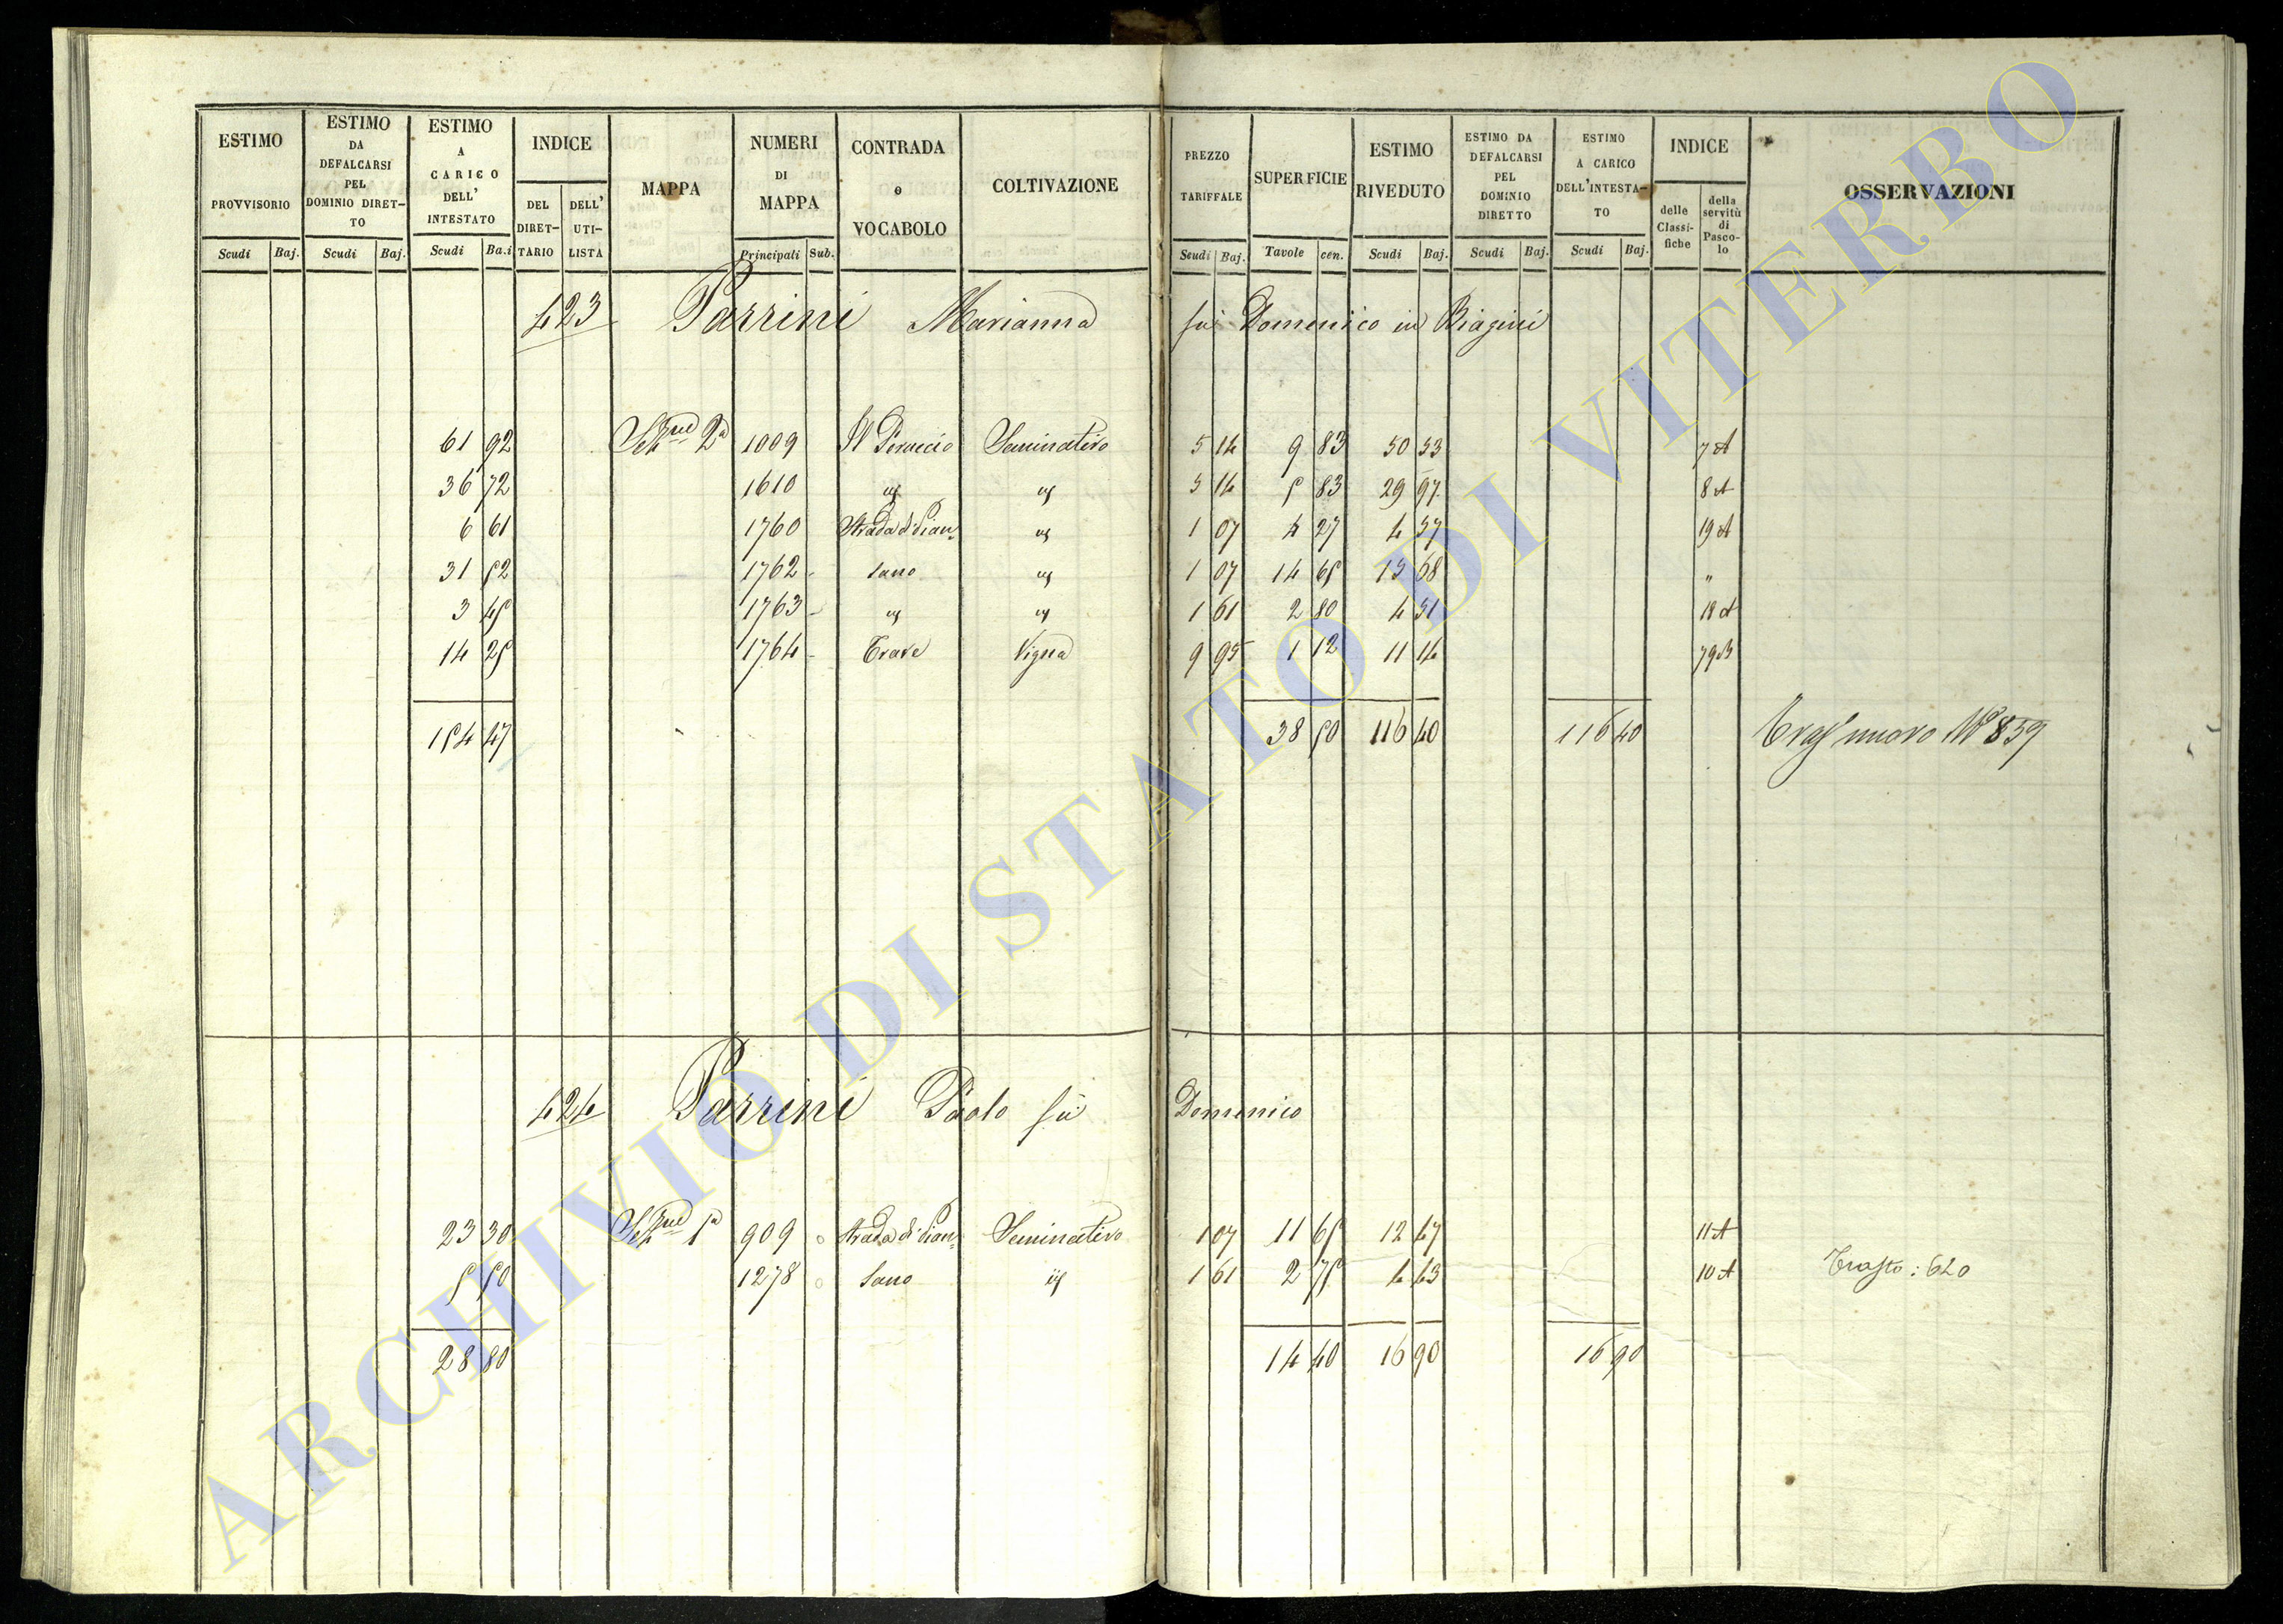 ESTIMO PROVVISORIO Scudi Baj.
ESTIMO DA DEFALCARSI PEL DOMINIO DIRET-TO Scudi Baj.
ESTIMO A CARICO DELL' INTESTATO Scudi Ba.i
INDICE DEL DIRET-TARIO DELL' UTI-LISTA
MAPPA
NUMERI DI MAPPA Principali Sub.
CONTRADA o VOCABOLO
COLTIVAZIONE
PREZZO TARIFFALE Scudi Baj.
SUPERFICIE Tavole cen.
ESTIMO RIVEDUTO Scudi Baj.
ESTIMO DA DEFALCARSI PEL DOMINIO DIRETTO Scudi Baj.
ESTIMO A CARICO DELL'INTESTA-TO Scudi Baj.
INDICE delle Classi-fiche della servitù di Pasco-lo
OSSERVAZIONI
423 Parrini Marianna fù Domenico in Biagini
61 92 Sez.ne 2a 1009 Il Seminativo 5 14 9 83 50 53 7 A
36 72 1610 id id 5 14 5 83 29 97 8 A
6 61 1760 Strada di Pian= id 1 07 4 27 4 57 19 A
31 52 1762 sano id 1 07 14 65 15 68 "
3 45 1763 id id 1 61 2 80 4 51 18 A
14 25 1764 Trave Vigna 9 95 1 12 11 14 79 B
154 47 38 50 116 40 116 40 Trasf nuovo No 859
424 Parrini Paolo fù Domenico
23 30 Sez.ne 1a 909 Strada di Pian= Seminativo 1 07 11 65 12 47 11 A
5 50 1278 sano id 1 61 2 75 4 43 10 A Trasto: 620
28 80 14 40 16 90 16 90
ARCHIVIO DI STATO DI VITERBO